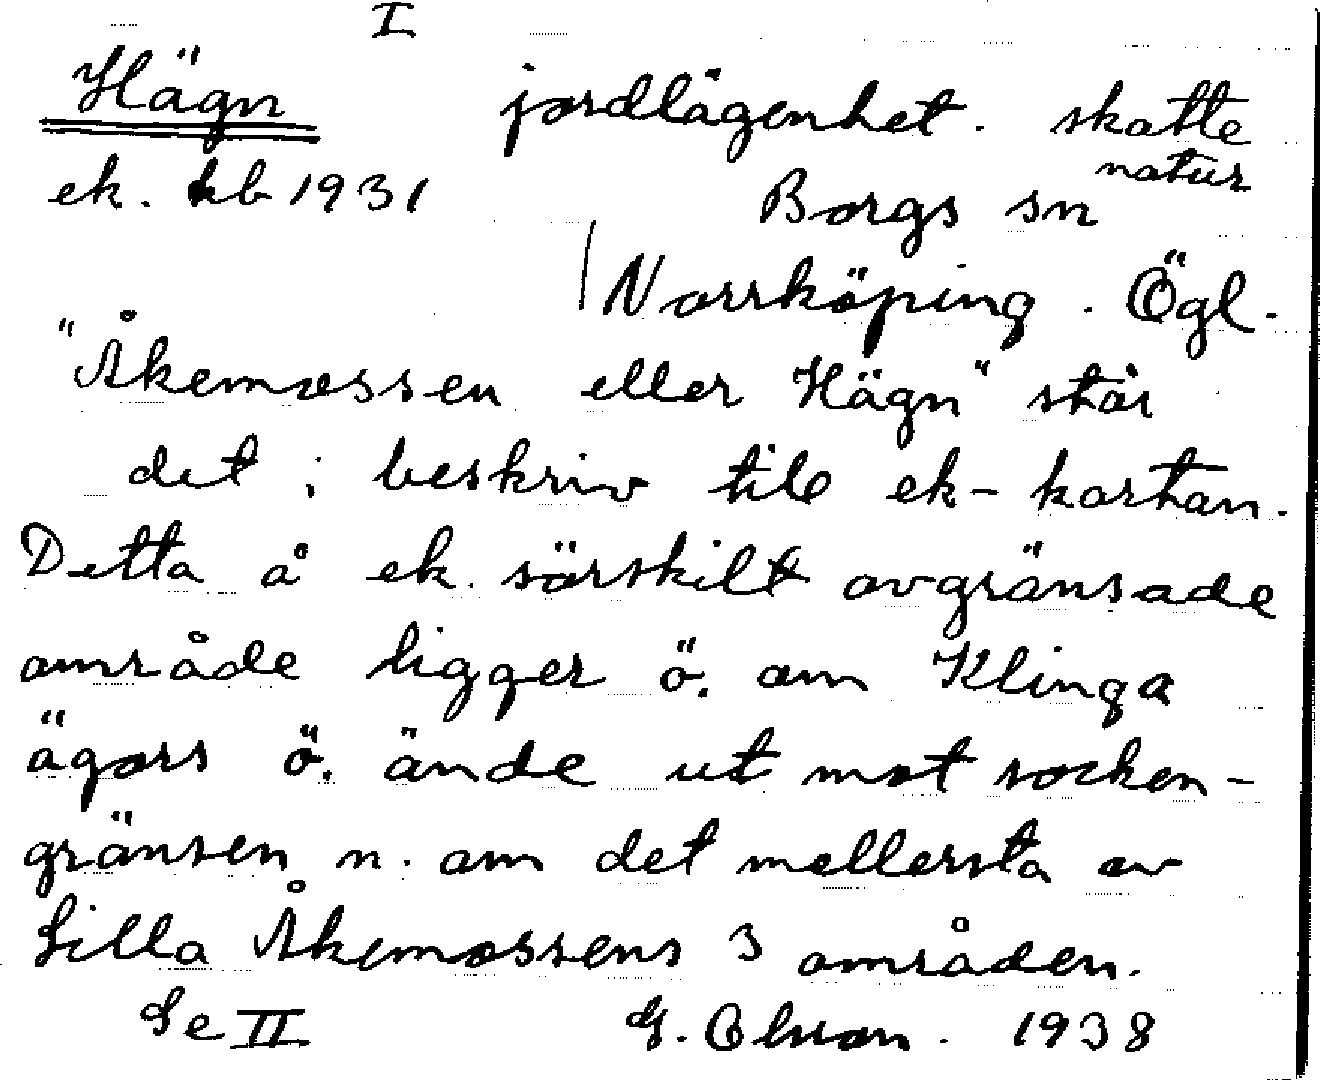 I
Hägn jordlägenhet. skatte
natur
ek. kb 1931 Borgs sn
/Norrköping. Ögl.
"Åkemossen eller Hägn" står
det i beskriv till ek-kartan.
Detta å ek. särskilt avgränsade
område ligger ö. om Klinga
ägors ö. ände ut mot socken-
gränsen n. om det mellersta av
Lilla Åkemossens 3 områden.
Se II G. Olson. 1938